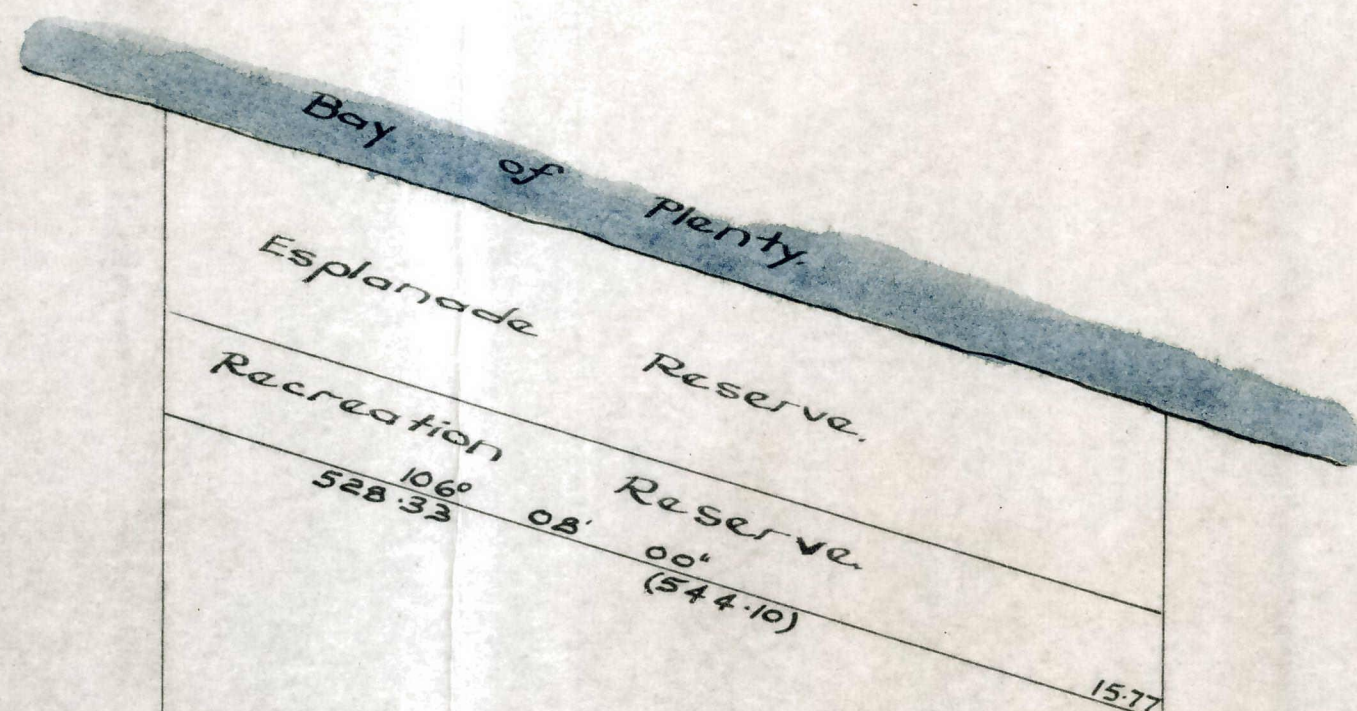 Bay of Plenty.
Esplanade Reserve.
Recreation Reserve.
106° 08' 00"
528.33 (544.10)
15.77